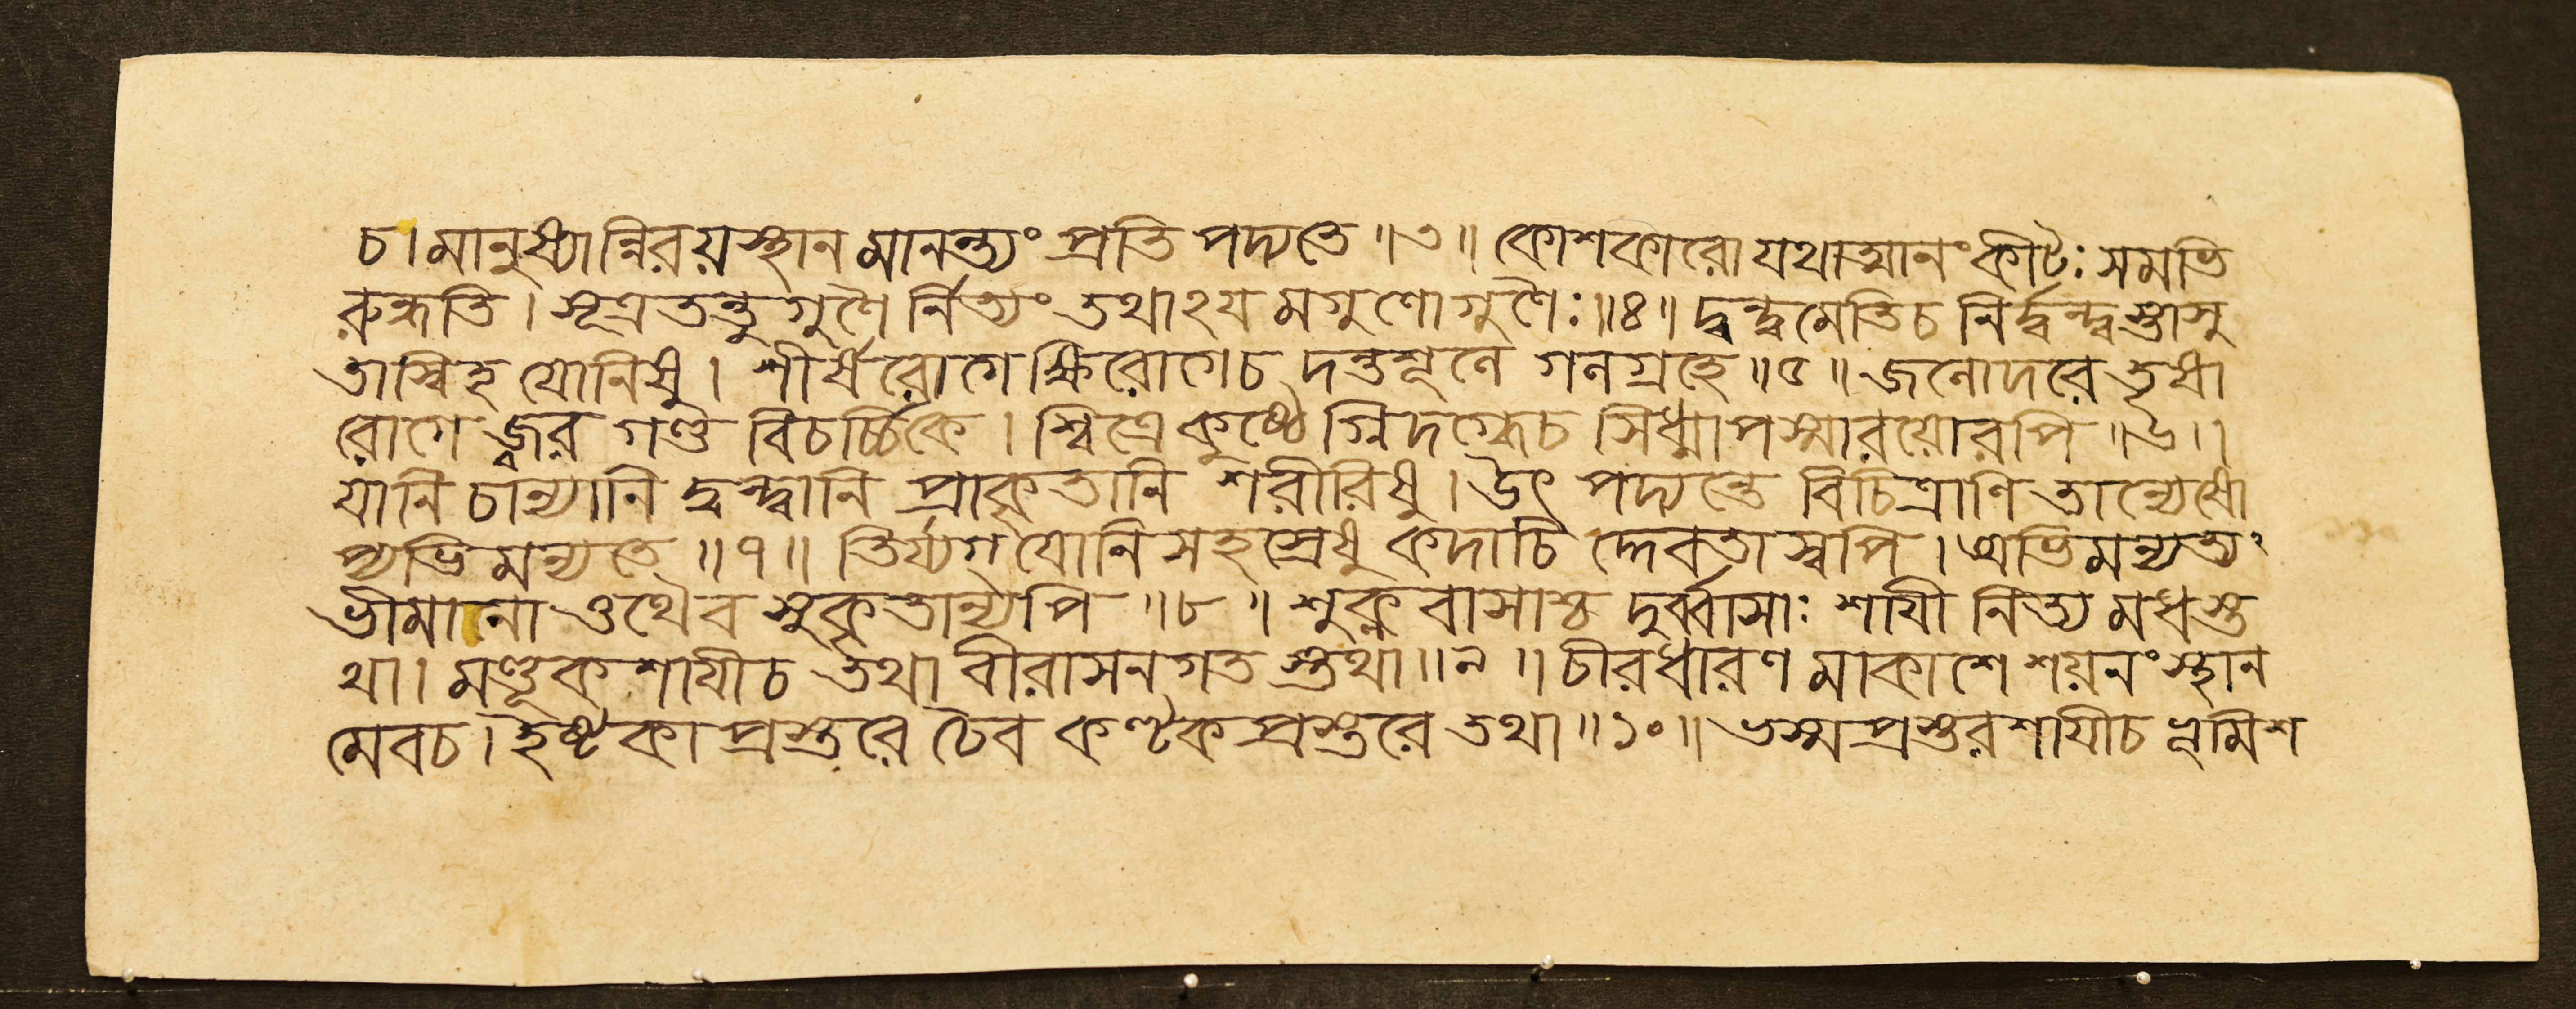 চ। মানুষ্যান্নিরয়স্থান মানন্ত্যং প্রতি পদ্যতে ॥৩॥ কোশকারো যথাত্মানং কীটৈঃ সমভি
রুন্ধতি। সূত্র তন্তু গুণৈ র্নিত্যং তথাঽয মগুণো গুণৈঃ॥৪॥ দ্বন্দ্বমেতিচ নির্দ্বন্দ্বস্তাসু
তাস্বিহ যোনিষু। শীর্ষরোগে ক্ষিরোগেচ দন্তশূলে গলগ্রহে ॥৫॥ জলোদরে তৃষা
রোগে জ্বর গণ্ড বিচর্চ্চিকে। শ্বিত্রে কুষ্ঠেগ্নিদগ্ধেচ সিধ্মাপস্মারয়োরপি ॥৬॥
যানি চান্যানি দ্বন্দ্বানি প্রাকৃতানি শরীরিষু। উৎ পদ্যন্তে বিচিত্রাণি তান্যেষো
প্যভি মন্যতে ॥৭॥ তির্য্যগ্ যোনি সহস্রেষু কদাচি দ্দেবতা স্বপি। অভিমন্যত্য
ভীমানো ওথৈব সুকৃতান্যপি ॥৮॥ শুক্ল বাসাশ্চ দুর্ব্বাসাঃ শাযী নিত্য মধস্ত
থা। মণ্ডূক শাযীচ তথা বীরাসনগত স্তথা ॥৯॥ চীরধারণ মাকাশে শয়নং স্থান
মেবচ। ইষ্টকা প্রস্তরে চৈব কণ্টক প্রস্তরে তথা ॥১০॥ ভস্ম প্রস্তর শাযীচ ভূমিশ